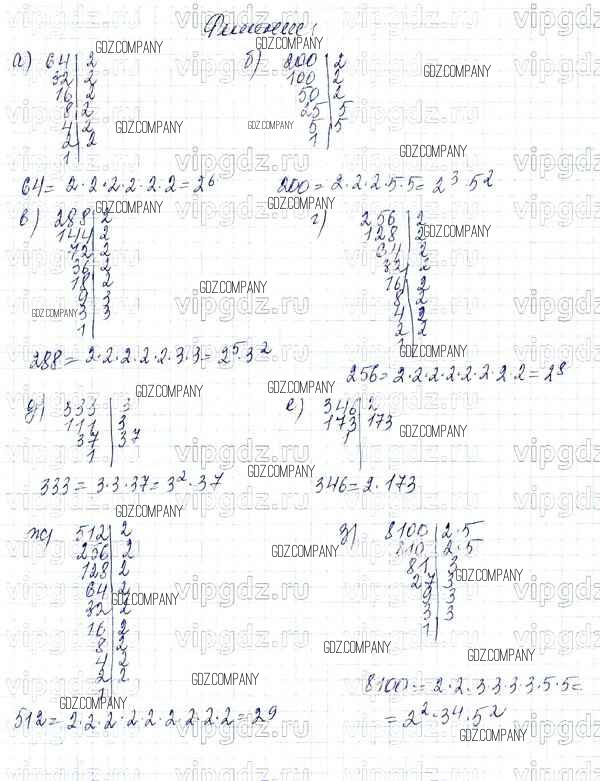 Решение:
а) 64 | 2
32 | 2
16 | 2
8 | 2
4 | 2
2 | 2
1
64 = 2·2·2·2·2·2 = 2⁶
б) 200 | 2
100 | 2
50 | 2
25 | 5
5 | 5
1
200 = 2·2·2·5·5 = 2³·5²
в) 288 | 2
144 | 2
72 | 2
36 | 2
18 | 2
9 | 3
3 | 3
1
288 = 2·2·2·2·2·3·3 = 2⁵·3²
г) 256 | 2
128 | 2
64 | 2
32 | 2
16 | 2
8 | 2
4 | 2
2 | 2
1
256 = 2·2·2·2·2·2·2·2 = 2⁸
д) 333 | 3
111 | 3
37 | 37
1
333 = 3·3·37 = 3²·37
е) 346 | 2
173 | 173
1
346 = 2·173
ж) 512 | 2
256 | 2
128 | 2
64 | 2
32 | 2
16 | 2
8 | 2
4 | 2
2 | 2
1
512 = 2·2·2·2·2·2·2·2·2 = 2⁹
з) 8100 | 2·5
810 | 2·5
81 | 3
27 | 3
9 | 3
3 | 3
1
8100 = 2·2·3·3·3·3·5·5 =
= 2²·3⁴·5²
GDZ.COMPANY
vipgdz.ru